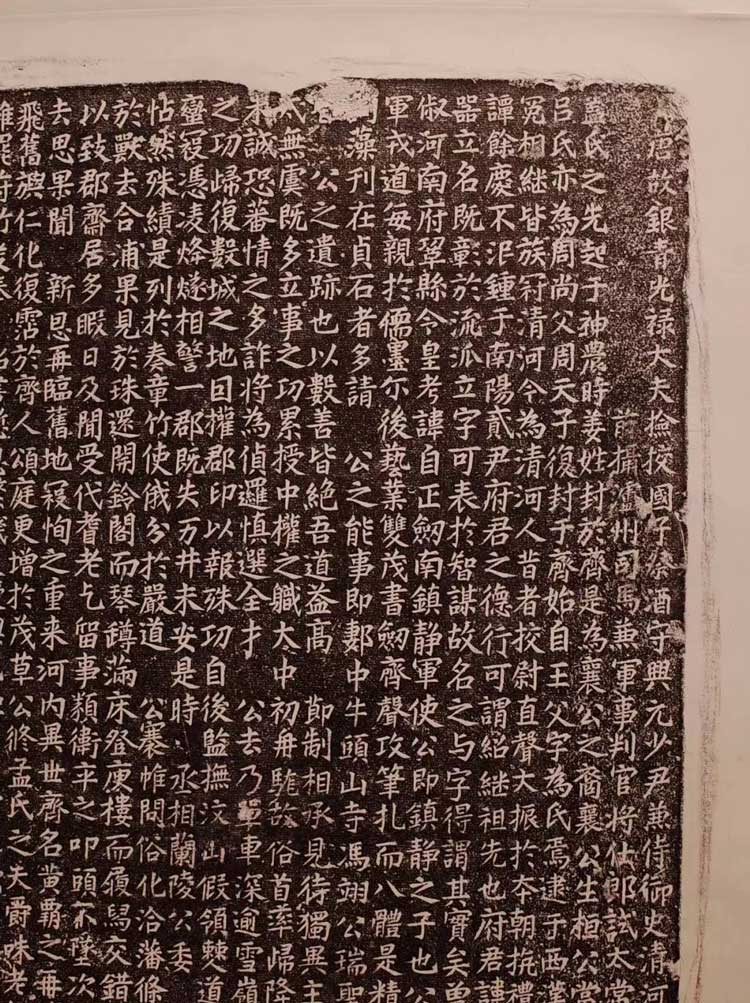 唐故銀青光禄大夫撿挍國子祭酒守興元少尹兼侍御史清河
前攝瀘州司馬兼軍事判官將仕郎試太常
蓋氏之先起于神農時姜姓封於齊是為襄公之裔襄公生桓公
吕氏亦為周尚父周天子復封于齊始自王父字為氏焉逮于西
冕相継皆族冠清河今為清河人昔者挍尉直聲大振於夲朝
譚餘慶不泯鍾于南陽貳尹府君之德行可謂紹継祖先也府君諱
器立名既章於流泒立字可表於智謀故名之与字得謂其實矣曽
俶河南府鞏縣令皇考諱自正劒南鎮静軍使公即鎮静之子也公
軍戎道每親扵儒墨尓後藝業雙茂書劒齊聲攻筆札而八體是精
藻刊在貞石者多請 公之能事即鄚中牛頭山寺馮翊公瑞聖
公之遺跡也以數善皆絶吾道益高 節制相承見待獨異主
無虞既多立事之功累授中權之職大中初舟駞故俗首率歸降
誠恐蕃情之多詐將為偵邏慎選全才 公去乃單車深逾雪嶺
之功歸復數城之地囙擢郡印以報殊功自後監撫汶山假領棘道
蠻寇憑凌烽燧相警一郡既失万井未安是時丞相蘭陵公委
怗然殊績是列於奏章竹使俄分於嚴道 公褰帷問俗化洽潘條
於獸去合浦果見於珠還開鈴閣而琴罇滿床登庾樓而履舄交錯
以致郡齋居多暇日及聞受代耆老乞留事類衛平之叩頭不墜次
去思果聞 新恩再臨舊地寇恂之重来河内異世齊名黄霸之再
飛舊旟仁化復霑於齊人頌庭更增於茂草公修孟氏之夫爵珠老